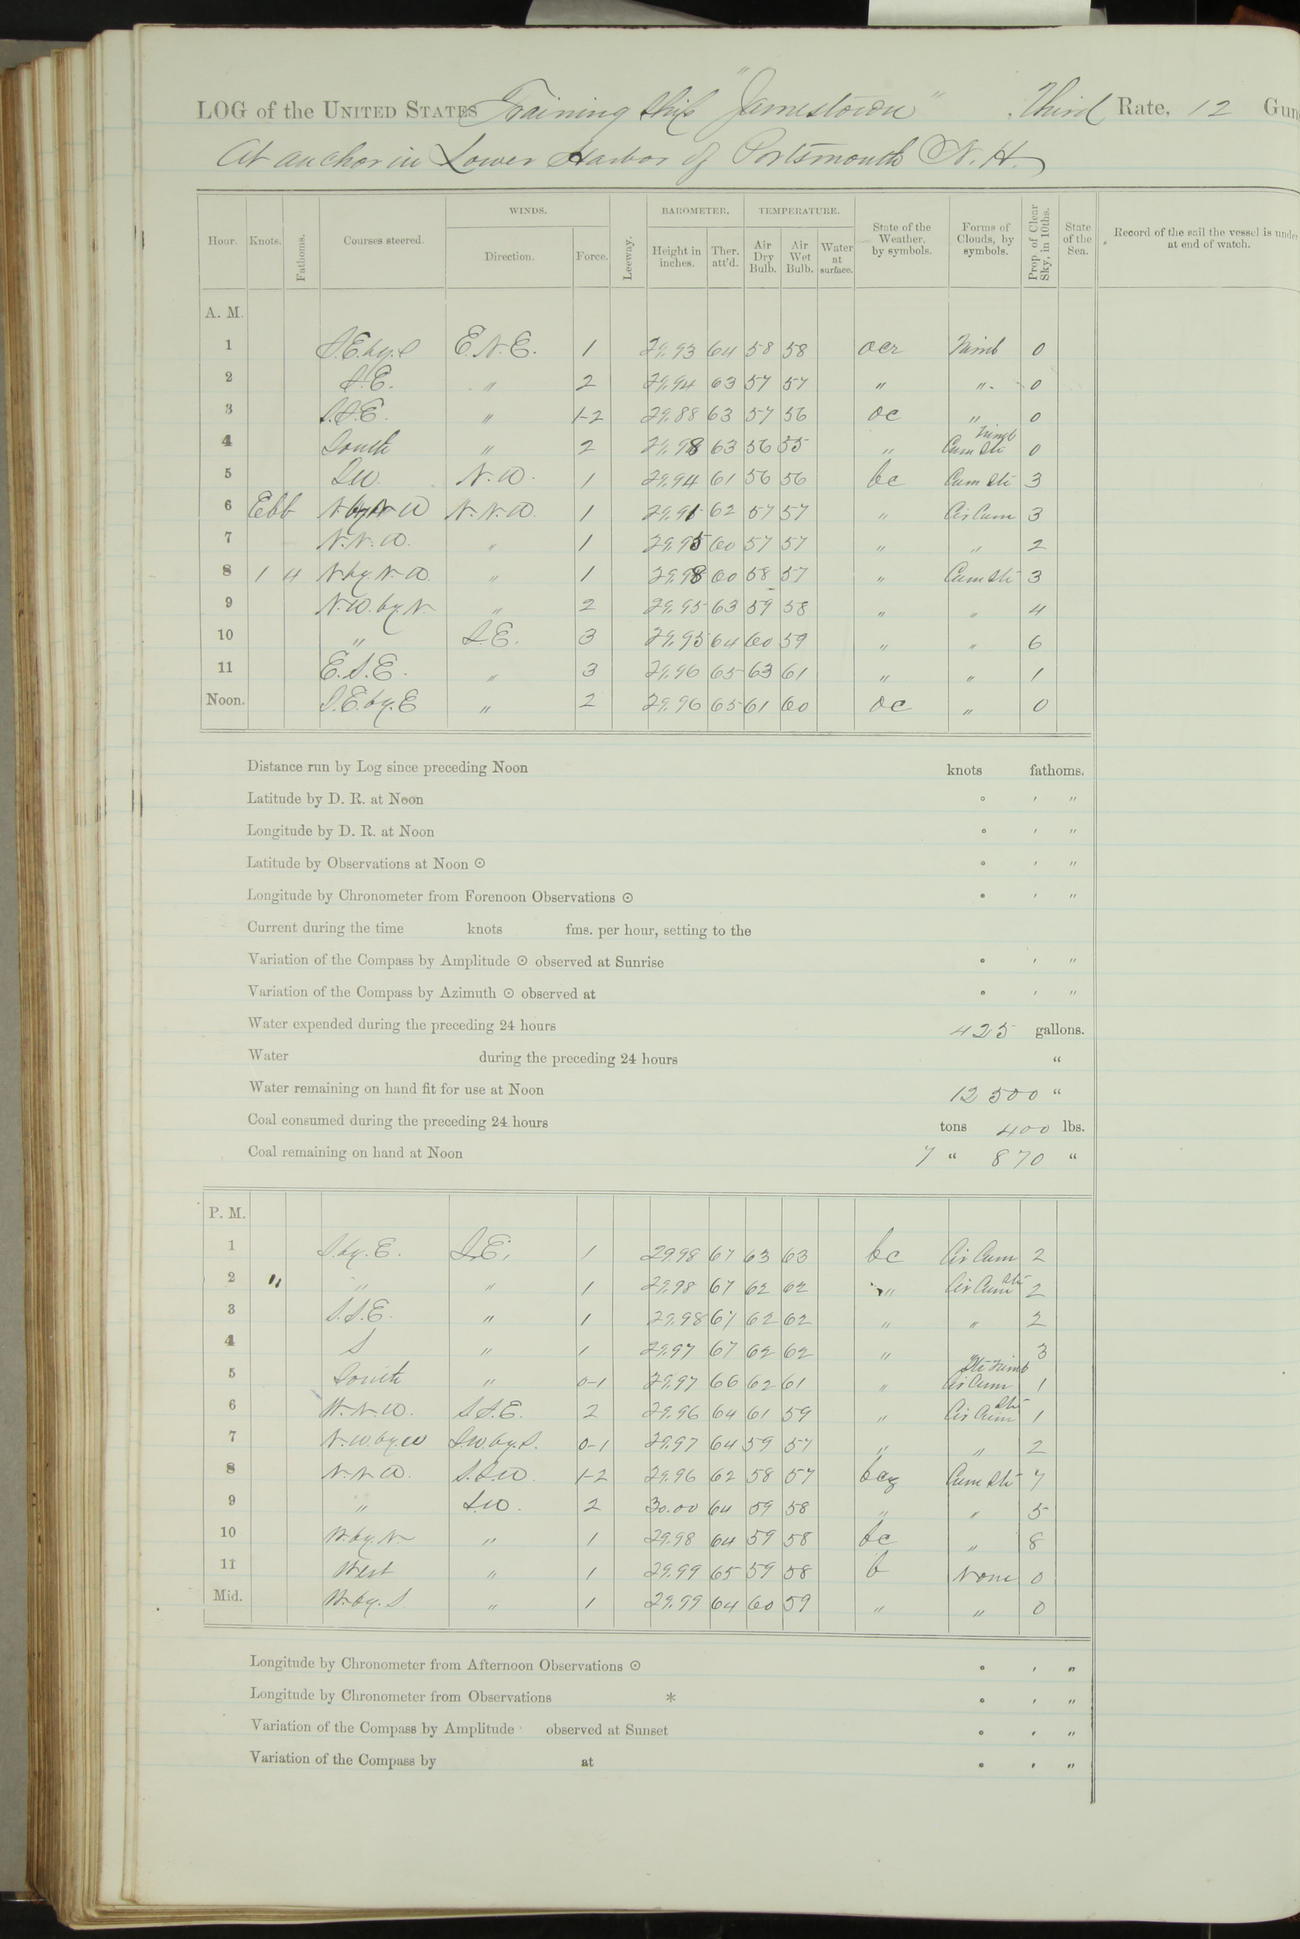 LOG of the UNITED STATES Training Ship "Jamestown", Third Rate, 12 Gun
At anchor in Lower Harbor of Portsmouth N.H.
WINDS. BAROMETER. TEMPERATURE.
Hour. Knots. Fathoms. Courses steered. Direction. Force. Leeway. Height in inches. Ther. att'd. Air Dry Bulb. Air Wet Bulb. Water at surface. State of the Weather, by symbols. Forms of Clouds, by symbols. Prop. of Clear Sky, in 10ths. State of the Sea. Record of the sail the vessel is under at end of watch.
A. M.
1 S.E. by S E.N.E. 1 29.93 64 58 58 ocr Nimb 0
2 S.E. " 2 29.94 63 57 57 " " 0
3 S.S.E. " 1-2 29.88 63 57 56 oc " 0
4 South " 2 29.98 63 56 55 " Cum Sti Nimb 0
5 SW. N.W. 1 29.94 61 56 56 bc Cum Sti 3
6 Ebb N by N W N.N.W. 1 29.91 62 57 57 " Cir Cum 3
7 N.N.W. " 1 29.95 60 57 57 " " 2
8 1 4 N by N.W. " 1 29.98 60 58 57 " Cum Sti 3
9 N.W. by N. " 2 29.95 63 59 58 " " 4
10 " S.E. 3 29.95 64 60 59 " " 6
11 E.S.E. " 3 29.96 65 63 61 " " 1
Noon. S.E. by E " 2 29.96 65 61 60 oc " 0
Distance run by Log since preceding Noon knots fathoms.
Latitude by D. R. at Noon ° ' "
Longitude by D. R. at Noon ° ' "
Latitude by Observations at Noon ☉ ° ' "
Longitude by Chronometer from Forenoon Observations ☉ ° ' "
Current during the time knots fms. per hour, setting to the
Variation of the Compass by Amplitude ☉ observed at Sunrise ° ' "
Variation of the Compass by Azimuth ☉ observed at ° ' "
Water expended during the preceding 24 hours 425 gallons.
Water during the preceding 24 hours "
Water remaining on hand fit for use at Noon 12 500 "
Coal consumed during the preceding 24 hours tons 400 lbs.
Coal remaining on hand at Noon 7 " 870 "
P. M.
1 S. by E. S.E. 1 29.98 67 63 63 bc Cir Cum 2
2 " " " 1 29.98 67 62 62 " Cir Cum Sti 2
3 S.S.E. " 1 29.98 67 62 62 " " 2
4 S " 1 29.97 67 62 62 " " 3
5 South " 0-1 29.97 66 62 61 " Cir Cum Sti Nimb 1
6 W.N.W. S.S.E. 2 29.96 64 61 59 " Cir Cum Sti 1
7 N.W. by W S.W. by S. 0-1 29.97 64 59 57 " " 2
8 N.N.W. S.S.W. 1-2 29.96 62 58 57 Cum Sti 7
9 " S.W. 2 30.00 64 59 58 " " 5
10 W. by N. " 1 29.98 64 59 58 bc " 8
11 West " 1 29.99 65 59 58 b None 0
Mid. W. by S " 1 29.99 64 60 59 " " 0
Longitude by Chronometer from Afternoon Observations ☉ ° ' "
Longitude by Chronometer from Observations * ° ' "
Variation of the Compass by Amplitude observed at Sunset ° ' "
Variation of the Compass by at ° ' "